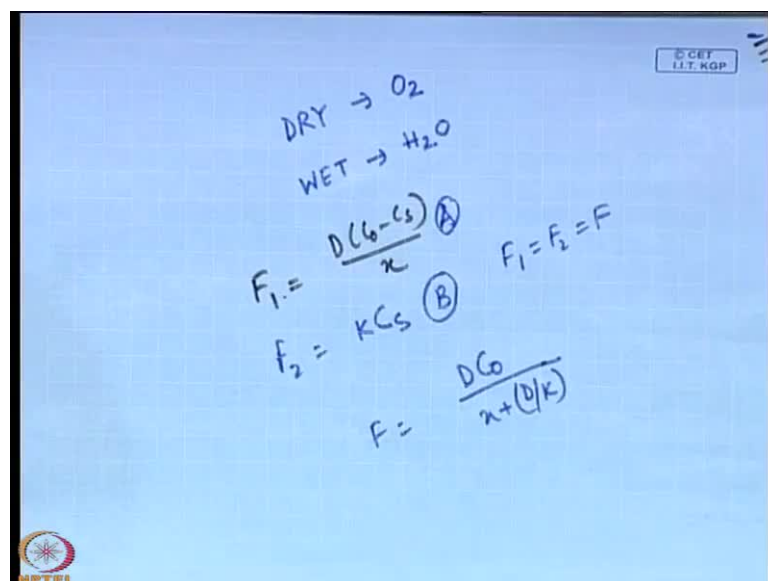 © CET
I.I.T. KGP
DRY → O2
WET → H2O
F1 = D(C0-Cs)/x (A)
F1 = F2 = F
F2 = KCs (B)
F = DC0/x+(D/K)
NPTEL